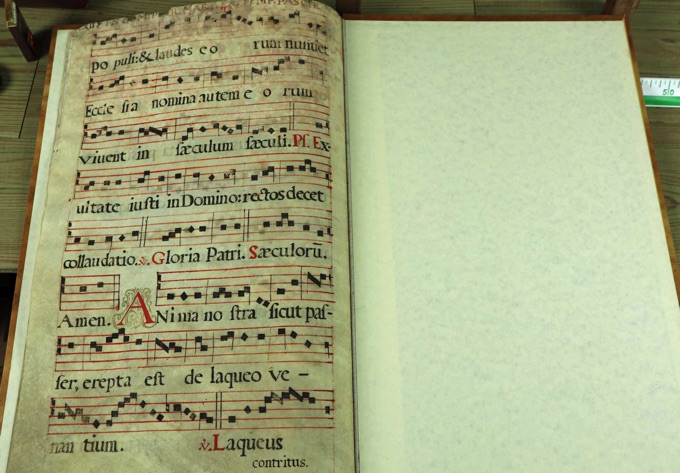 po puli: & laudes e o rum nuntiet
Eccle sia nomina autem e o rum
vivent in sæculum sæculi. Ps. Ex-
ultate iusti in Domino: rectos decet
collaudatio. ℣. Gloria Patri. Sæculorũ.
Amen. ANima no stra sicut pas-
ser, erepta est de laqueo ve –
nan tium. ℣. Laqueus
contritus.
50